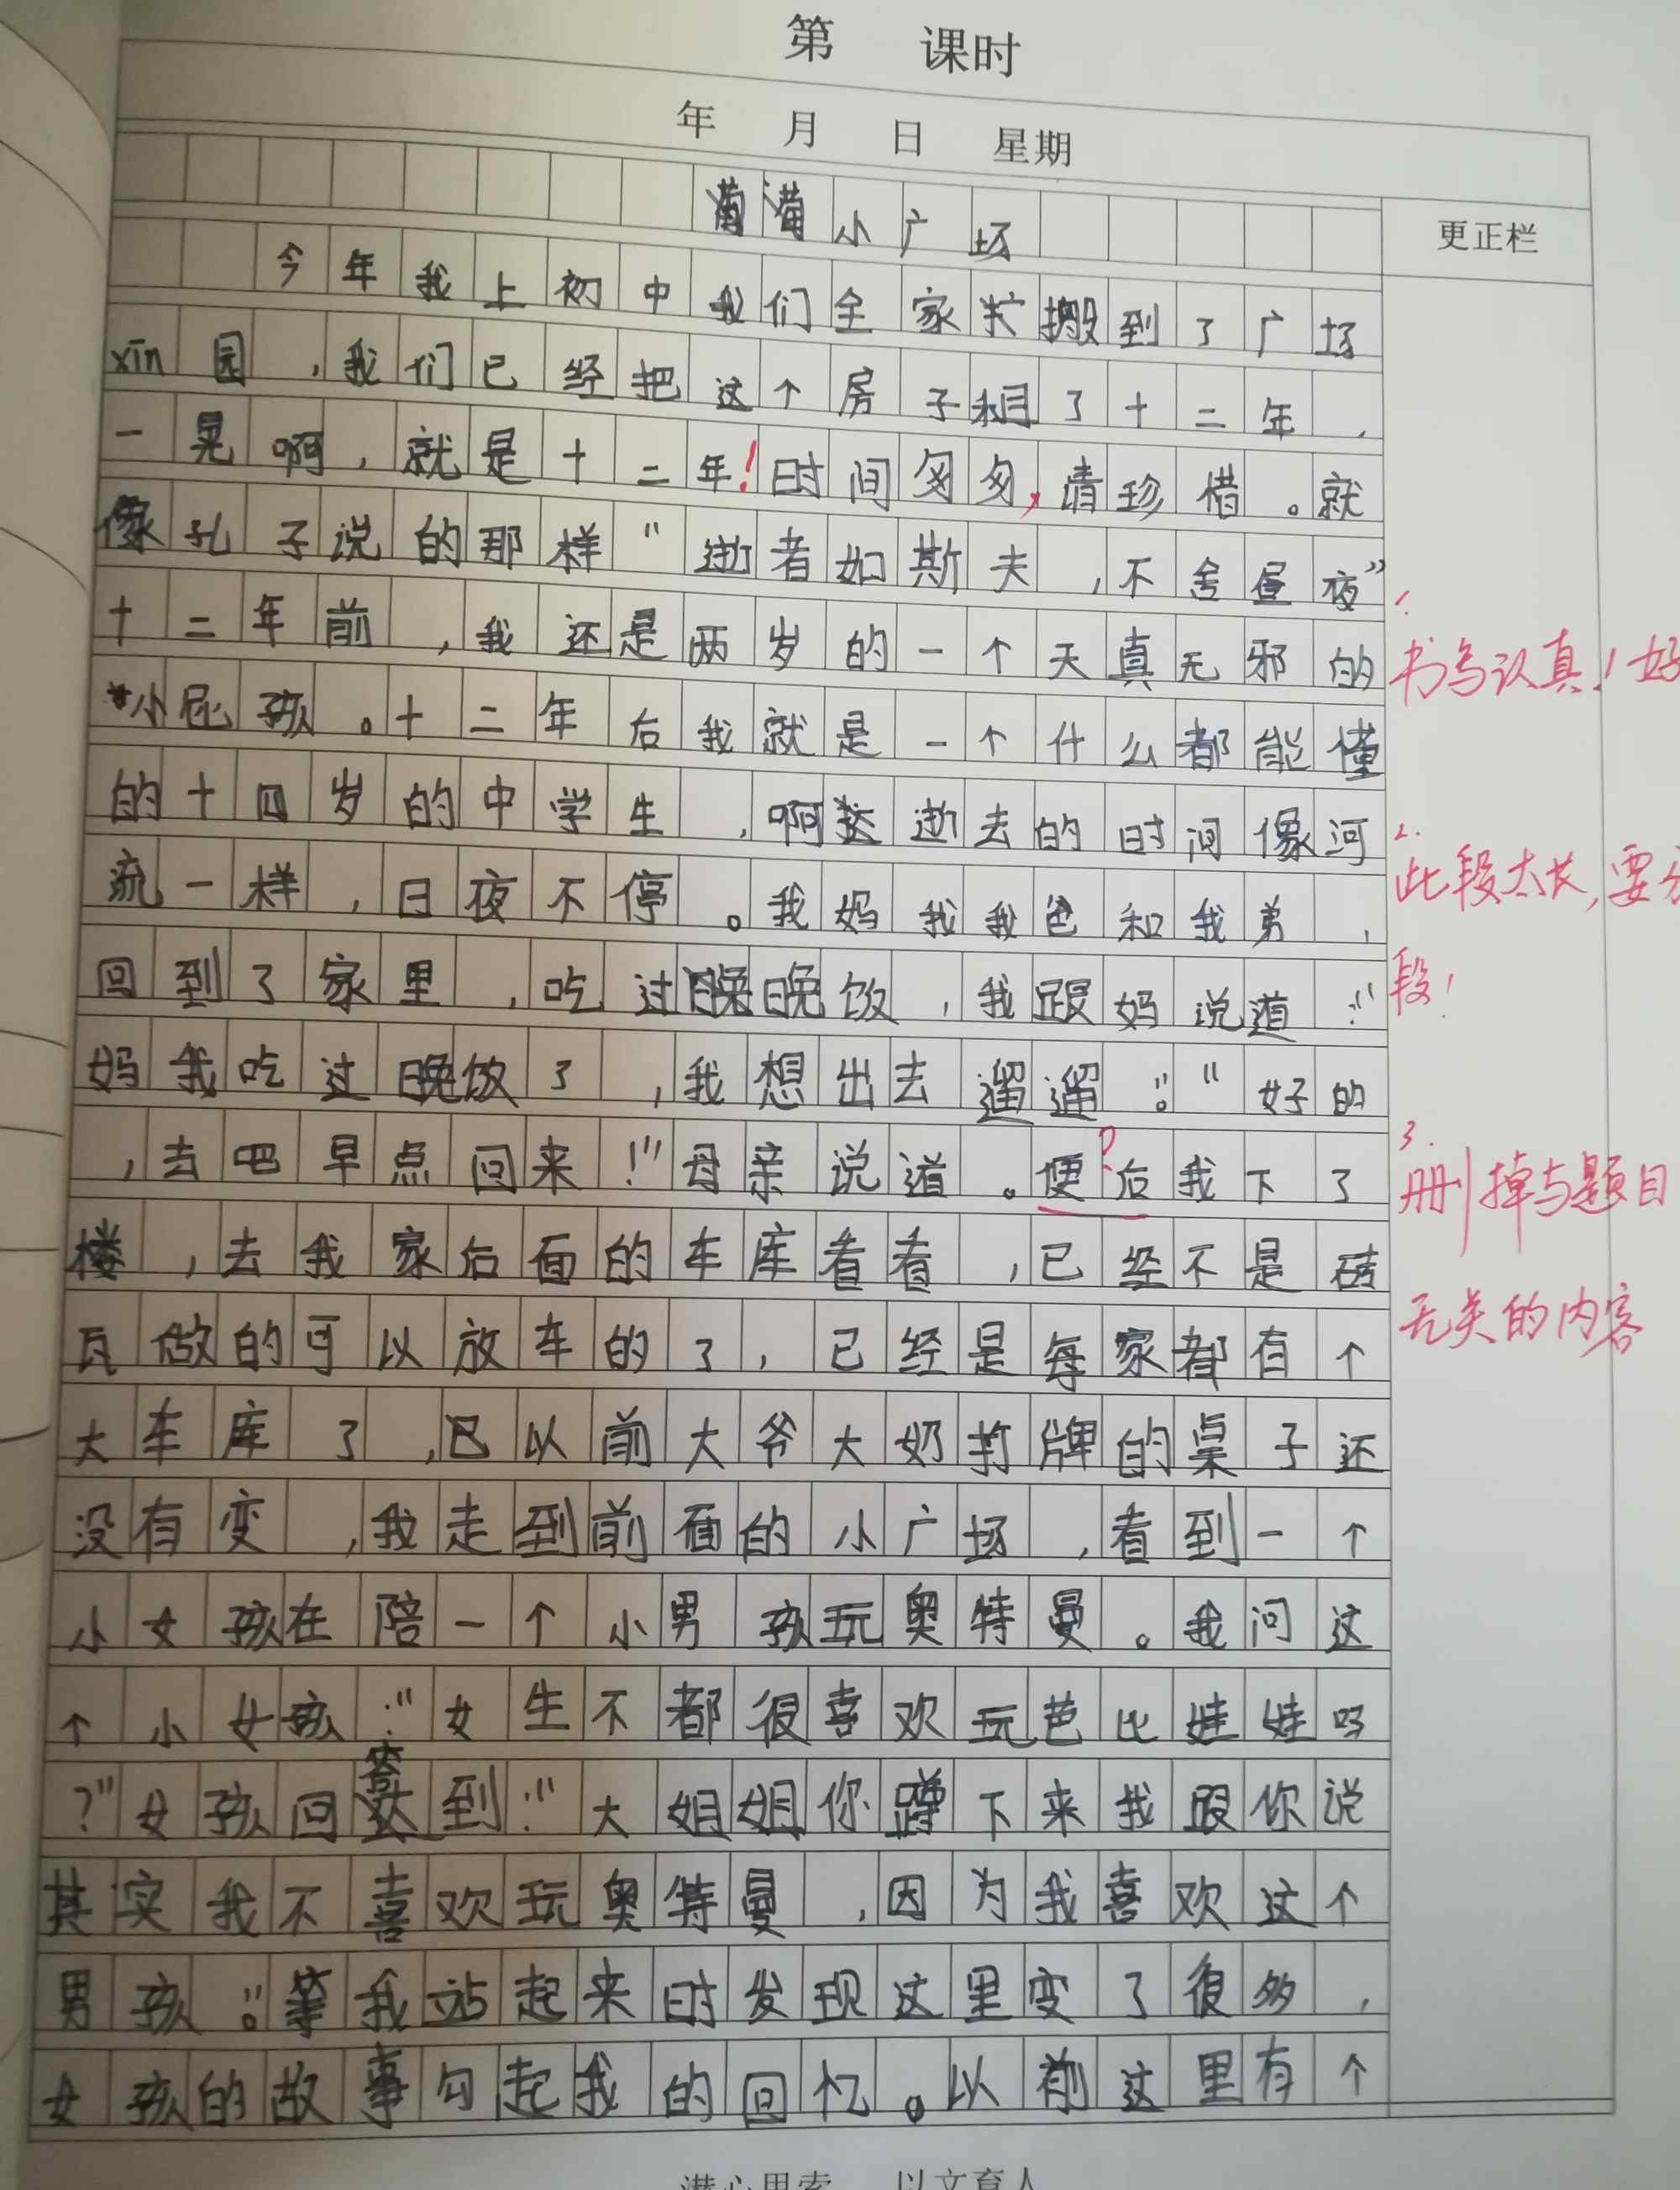 第 课时
年 月 日 星期
更正栏
小广场
今年我上初中我们全家搬到了广场
xīn园,我们已经把这个房子租了十二年,
一晃啊,就是十二年!时间匆匆,请珍惜。就
像孔子说的那样“逝者如斯夫,不舍昼夜”
十二年前,我还是两岁的一个天真无邪的
小屁孩。十二年后我就是一个什么都能懂
的十四岁的中学生,啊逝去的时间像河
流一样,日夜不停。我妈我我爸和我弟,
回到了家里,吃过晚饭,我跟妈说道:“
妈我吃过晚饭了,我想出去遛遛。”“好的
,去吧早点回来!”母亲说道。便后我下了
楼,去我家后面的车库看看,已经不是砖
瓦做的可以放车的了,已经是每家都有个
大车库了,以前大爷大奶打牌的桌子还
没有变,我走到前面的小广场,看到一个
小女孩在陪一个小男孩玩奥特曼。我问这
个小女孩:“女生不都很喜欢玩芭比娃娃吗
?”女孩回答到:“大姐姐你蹲下来我跟你说
其实我不喜欢玩奥特曼,因为我喜欢这个
男孩。”等我站起来时发现这里变了很多,
女孩的故事勾起我的回忆。以前这里有个
1.
书写认真!好
2.
此段太长,要分
段!
?
3.
删掉与题目
无关的内容
潜心思索 以文育人